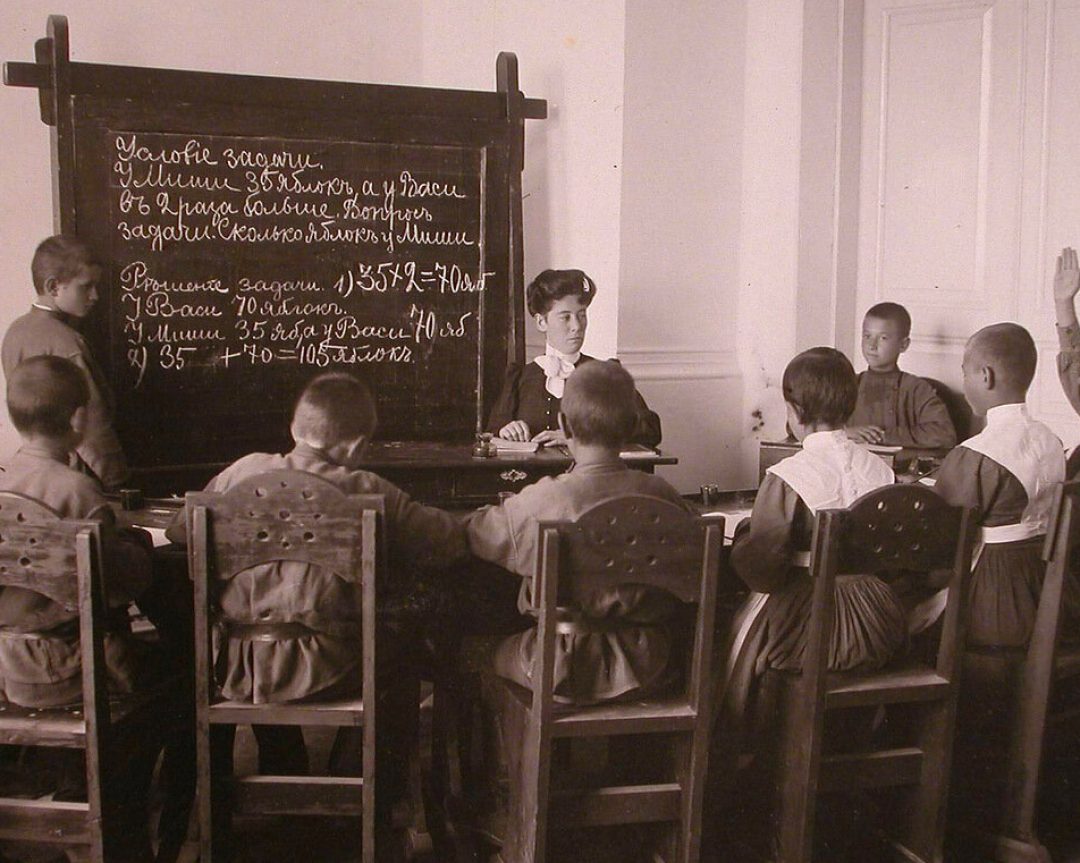 Условіе задачи.
У Миши 35 яблокъ, а у Васи
въ 2 раза больше. Вопросъ
задачи. Сколько яблокъ у Миши.
Рѣшеніе задачи. 1) 35×2=70 яб
У Васи 70 яблокъ.
У Миши 35 яб а у Васи 70 яб
2) 35 + 70 = 105 яблокъ.